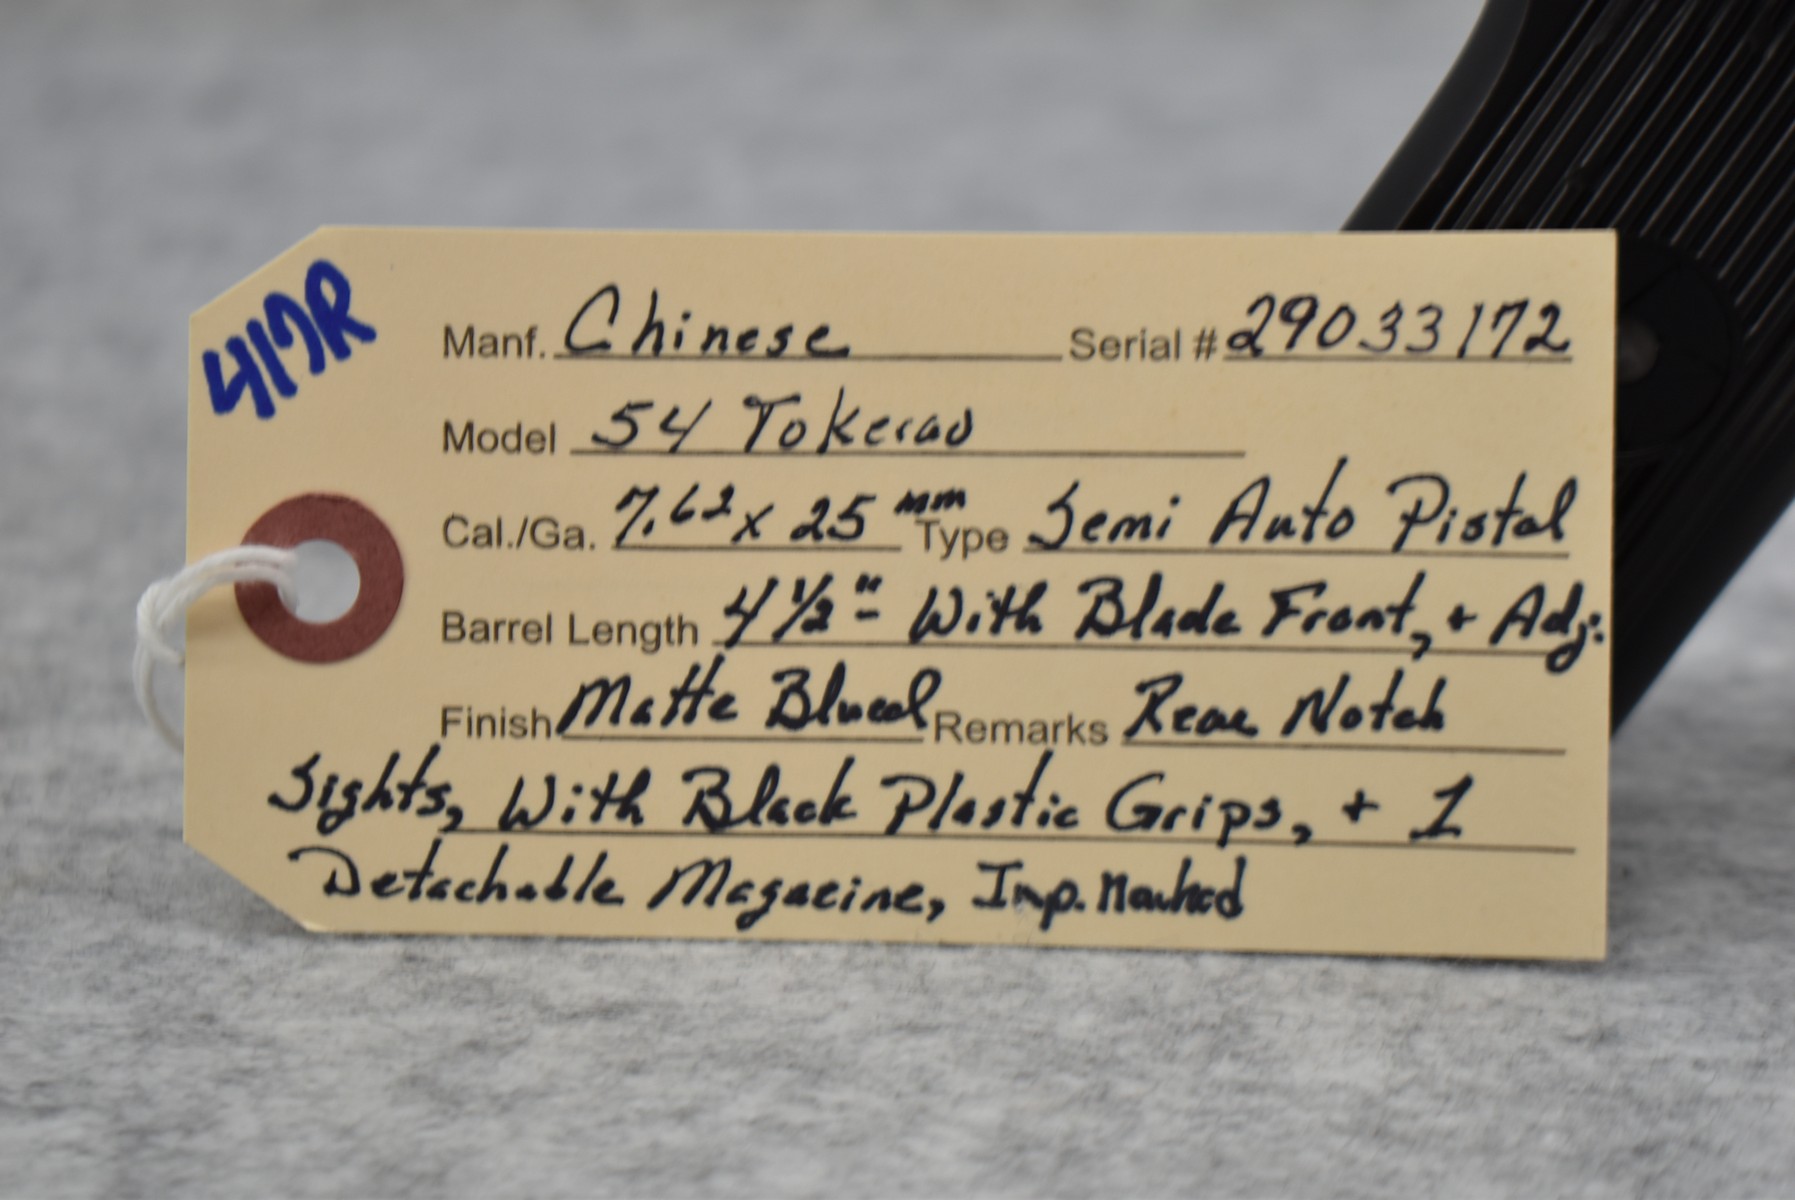 417R
Manf. Chinese Serial # 29033172
Model 54 Tokerav
Cal./Ga. 7.62 x 25 mm Type Semi Auto Pistol
Barrel Length 4 1/2"- With Blade Front, + Adj.
Finish Matte Blued Remarks Rear Notch
Sights, With Black Plastic Grips, + 1
Detachable Magazine, Imp. Marked